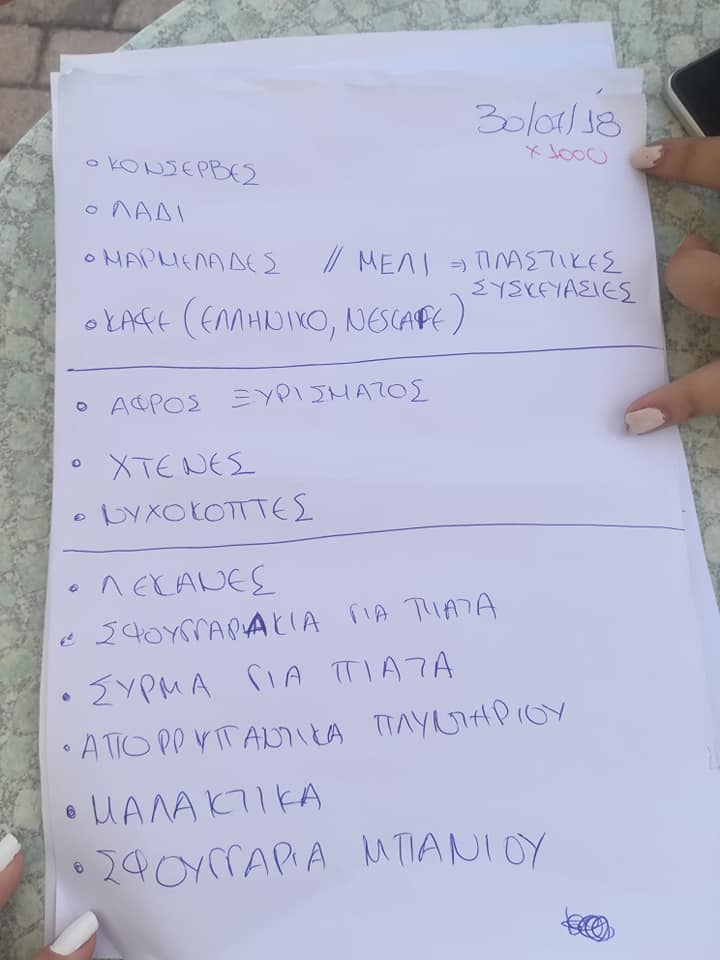 30/07/18
x 1000
ΚΟΝΣΕΡΒΕΣ
ΛΑΔΙ
ΜΑΡΜΕΛΑΔΕΣ // ΜΕΛΙ => ΠΛΑΣΤΙΚΕΣ
ΣΥΣΚΕΥΑΣΙΕΣ
ΚΑΦΕ (ΕΛΛΗΝΙΚΟ, NESCAFE)
ΑΦΡΟΣ ΞΥΡΙΣΜΑΤΟΣ
ΧΤΕΝΕΣ
ΝΥΧΟΚΟΠΤΕΣ
ΛΕΚΑΝΕΣ
ΣΦΟΥΓΓΑΡΑΚΙΑ ΓΙΑ ΠΙΑΤΑ
ΣΥΡΜΑ ΓΙΑ ΠΙΑΤΑ
ΑΠΟΡΡΥΠΑΝΤΙΚΑ ΠΛΥΝΤΗΡΙΟΥ
ΜΑΛΑΚΤΙΚΑ
ΣΦΟΥΓΓΑΡΙΑ ΜΠΑΝΙΟΥ